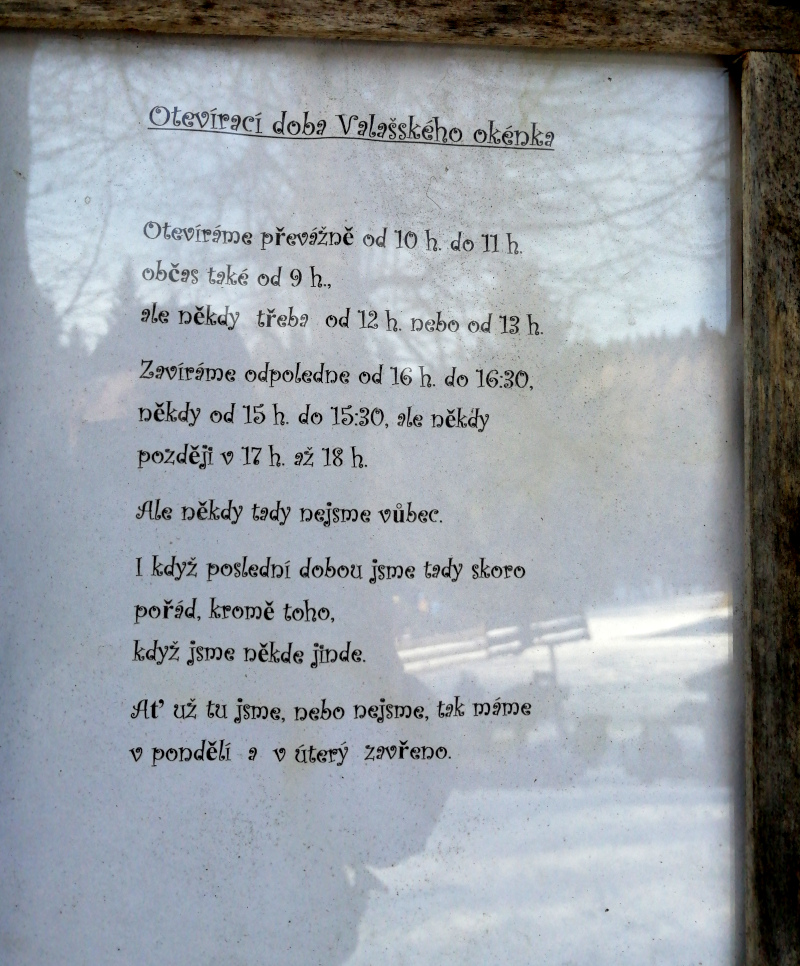 Otevírací doba Valašského okénka
Otevíráme převážně od 10 h. do 11 h.
občas také od 9 h.,
ale někdy třeba od 12 h. nebo od 13 h.
Zavíráme odpoledne od 16 h. do 16:30,
někdy od 15 h. do 15:30, ale někdy
později v 17 h. až 18 h.
Ale někdy tady nejsme vůbec.
I když poslední dobou jsme tady skoro
pořád, kromě toho,
když jsme někde jinde.
Ať už tu jsme, nebo nejsme, tak máme
v pondělí a v úterý zavřeno.